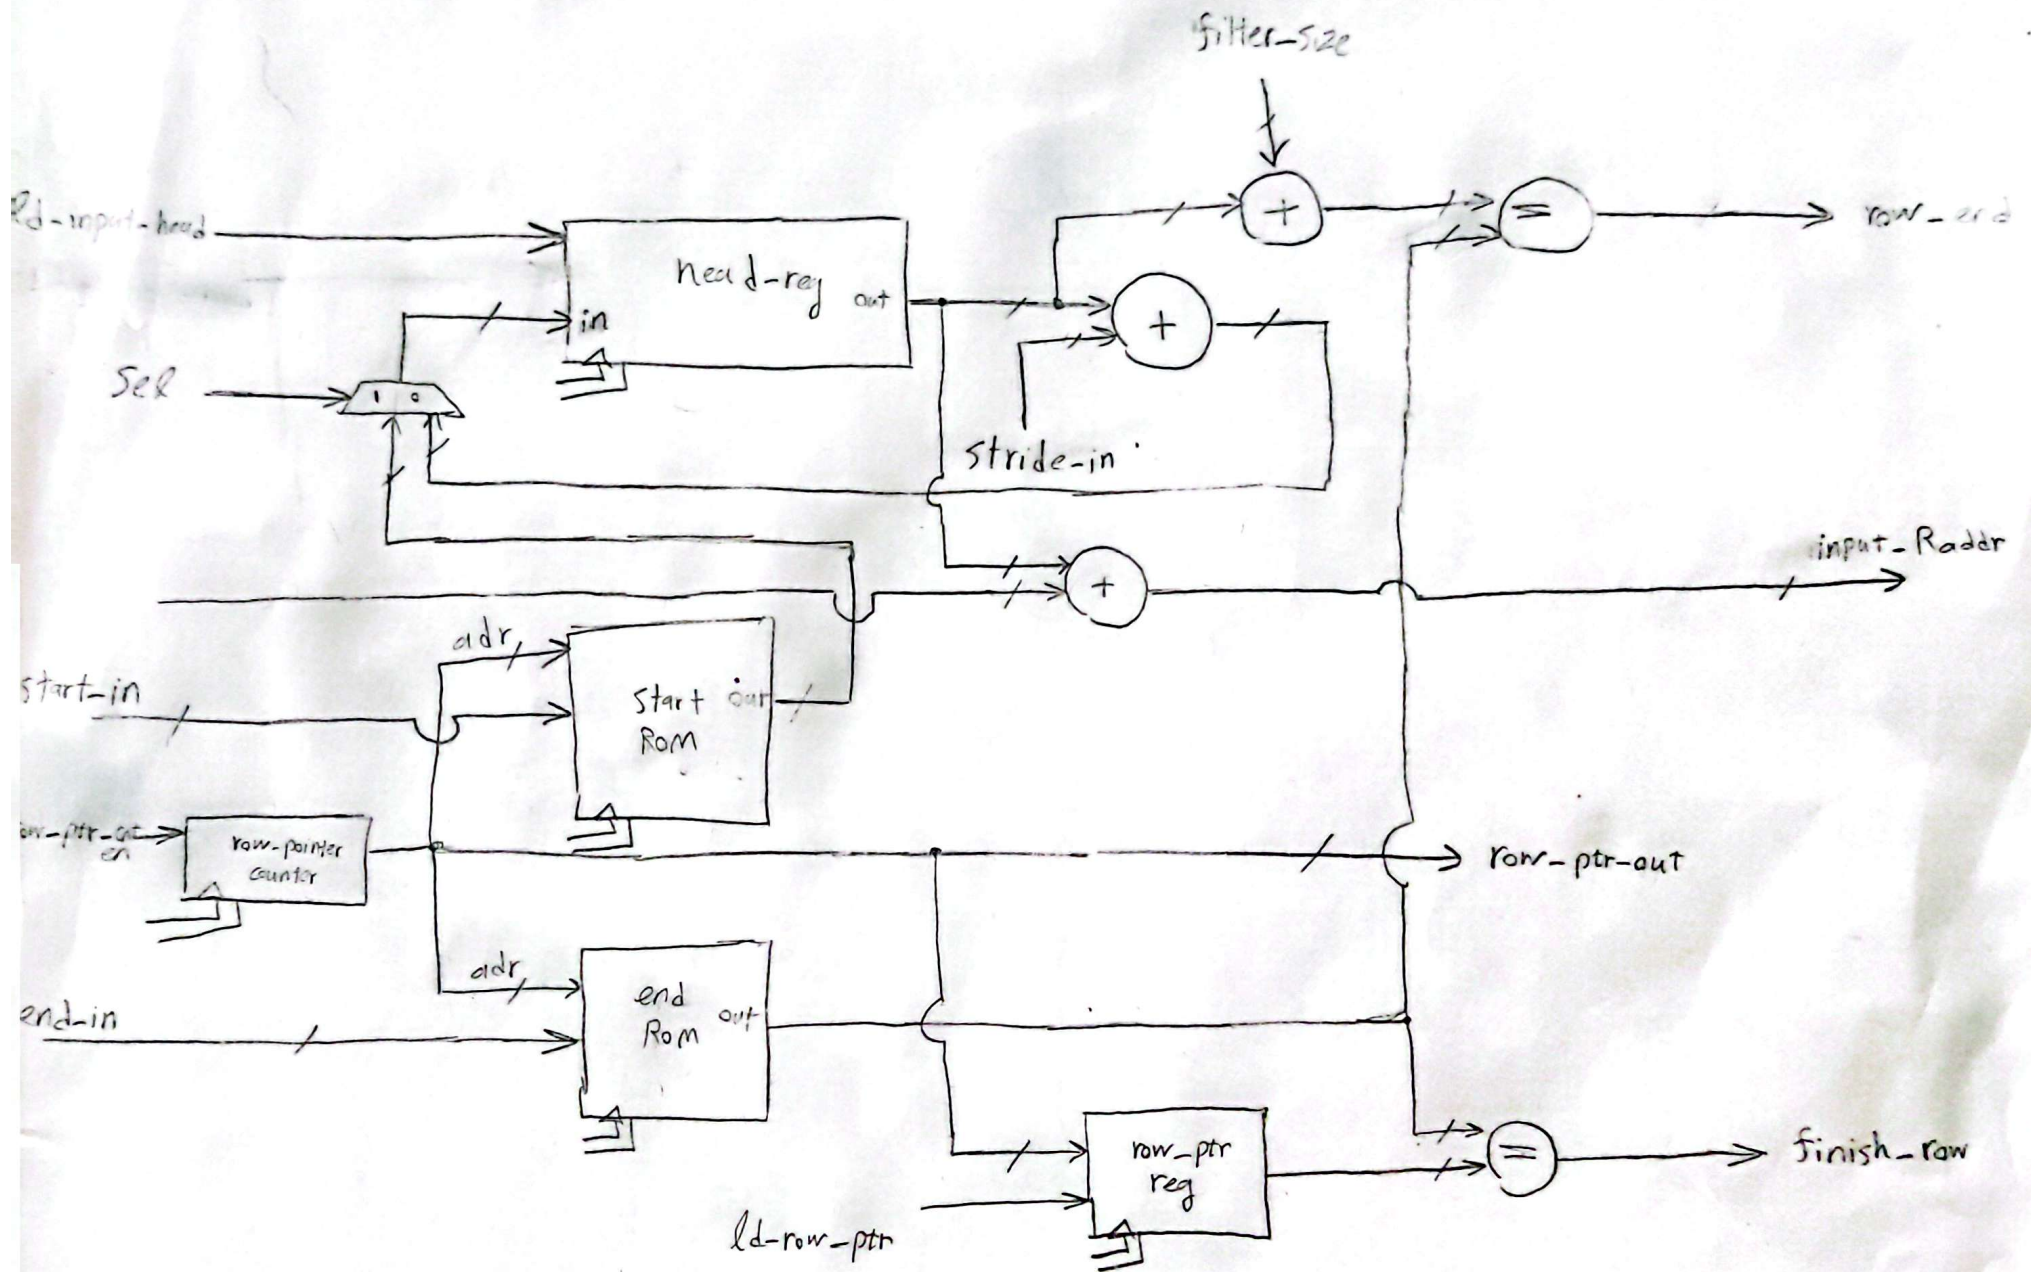 filter_size
ld-input-head
head-reg
out
+
=
row_end
in
+
Sel
1 0
stride-in
input_Raddr
+
adr
start_in
start out
ROM
row-ptr-cnt
en
row-pointer
counter
row_ptr-out
adr
end_in
end
ROM
out
row_ptr
reg
=
finish_row
ld-row_ptr